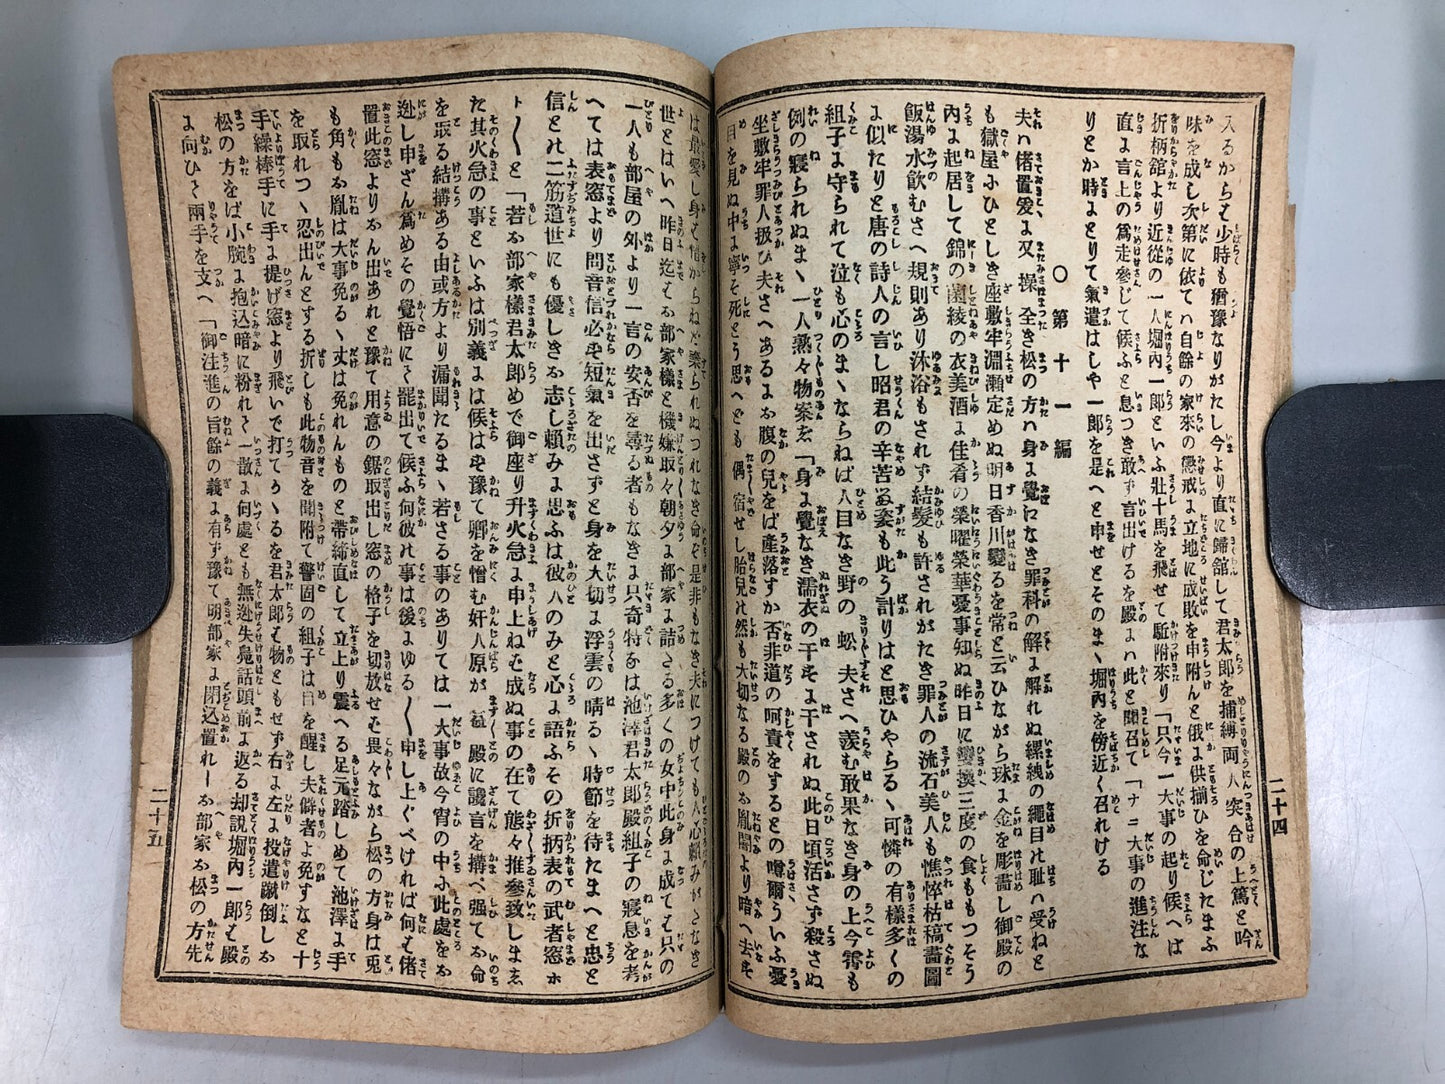 入るからむ少時も猶豫なりがたし今より直に歸舘して君太郎を捕縛両人突合の上篤と吟
味を成し次第に依てハ自餘の家來の懲戒よ立地に成敗を申附んと俄よ供揃ひを命じたまふ
折柄舘より近從の一人堀內一郎といふ壯士馬を飛せて駈附來り「只今一大事の起り候へば
直よ言上の爲走參じて候ふと息つき敢ず言出けるを殿よハ此と聞召て「ナニ大事の進注な
りとか時よとりて氣遣はしや一郎を是へと申せとそのまヽ堀內を傍近く召れける
〇第十一編
夫ハ偖置爰よ又操全き松の方ハ身よ覺になき罪科の解よ解れぬ縲絏の繩目の耻ハ受ねと
も獄屋ふひとしき座敷牢淵瀨定めぬ明日香川變るを常と云ひながら珠よ金を彫畵し御殿の
內よ起居して錦の圍綾の衣美酒よ佳肴の榮曜榮華憂事知ぬ昨日に變換三度の食ももつそう
飯湯水飮むさへ規則あり沐浴もされず結髮も許されがたき罪人の流石美人も憔悴枯槁畵圖
よ似たりと唐の詩人の言し昭君の辛苦の姿も此う計りはと思ひやらるヽ可憐の有樣多くの
組子よ守られて泣も心のまヽならねば人目なき野の蛩夫さへ羨む敢果なき身の上今霄も
例の寢られぬまヽ一人熟々物案ゑ「身よ覺なき濡衣の干そよ干されぬ此日頃活さず殺さぬ
坐敷牢罪人扱ひ夫さへあるよお腹の兒をば產落すか否非道の呵責をするとの噂爾ういふ憂
目を見ぬ中よ寧そ死とう思へども偶宿せし胎兒の然も大切なる殿のお胤闇より暗へ去すそ
二十四
は最愛し身は惜からねど棄られぬつれなき命ぞ是非もなき夫につけても人心賴みがたなき
世とはいへ昨日迄むお部家樣と機嫌取々朝夕よ部家よ詰さる多くの女中此身よ成てむ只の
一人も部屋の外より一言の安否を尋る者もなきよ只奇特なは池澤君太郎殿組子の寢息を考
へては表窓より問音信必ず短氣を出さずと身を大切よ浮雲の晴るヽ時節を待たまへと忠と
信との二筋道世にも優しきお志し賴みよ思ふは彼人のみと心よ語ふその折柄表の武者窓ホ
ト〱と「若お部家樣君太郎めで御座り升火急よ申上ねむ成ぬ事の在て態々推參致しまゑ
た其火急の事といふは別義よは候はず豫て卿を憎む奸人原が益殿に讒言を搆へ强てお命
を取る結搆ある由或方より漏聞たるまヽ若さる事のありては一大事故今宵の中ふ此處をお
迯し申ざん爲めその覺悟にて罷出て候ふ何彼の事は後よゆる〱申し上ぐべければ何む偖
置此窓よりおん出あれと豫て用意の鋸取出し窓の格子を切放せむ畏々ながら松の方身は兎
も角もお胤は大事免るヽ丈は免れんものと帶締直して立上り震へる足元踏しめて池澤よ手
を取れつヽ忍出んとする折しも此物音を聞附て警固の組子は目を醒し夫僻者よ免すなと十
手繰棒手に手よ提げ窓より飛いで打てかヽるを君太郎む物ともせず右よ左よ投遣蹴倒しお
松の方をば小腕よ抱込暗に粉れて一散よ何處とも無迯失鳧話頭前よ返る却説堀內一郎む殿
よ向ひて兩手を支へ「御注進の旨餘の義よ有ず豫て明部家よ閉込置れーお部家お松の方先
二十五